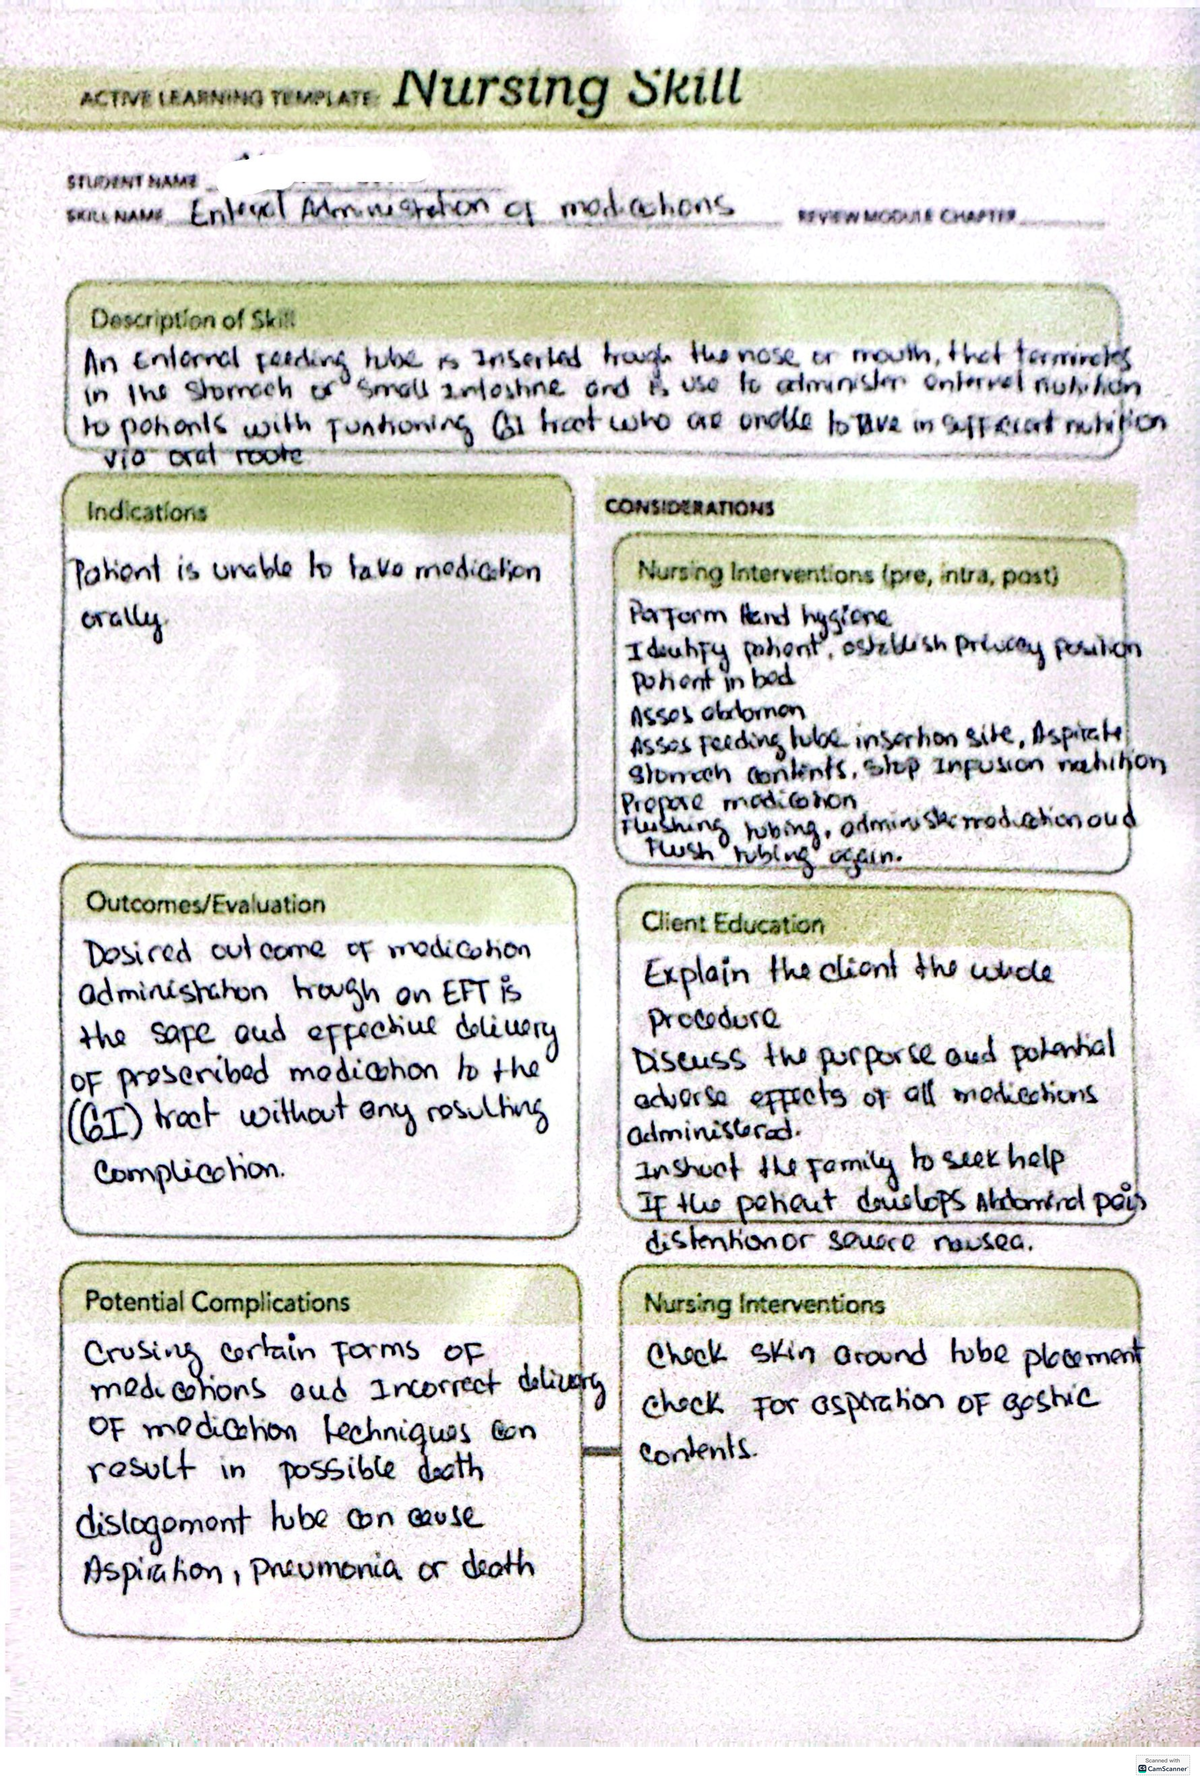 ACTIVE LEARNING TEMPLATE: Nursing Skill
STUDENT NAME
SKILL NAME Enteral Administration of medications REVIEW MODULE CHAPTER
Description of Skill
An Enternal Feeding tube is Inserted trough the nose or mouth, that terminates
in the stomach or small Intestine and is use to administer enternal nutrition
to patients with Funtioning GI tract who are unable to take in sufficient nutrition
via oral route
Indications
Patient is unable to take medication
orally.
CONSIDERATIONS
Nursing Interventions (pre, intra, post)
Perform Hand hygiene
Identify patient, establish privacy position
patient in bed
Asses abdomen
Asses Feeding tube insertion site, Aspirate
Stomach contents, Stop Infusion nutrition
Prepare medication
Flushing tubing, administer medication and
Flush tubing again.
Outcomes/Evaluation
Desired outcome of medication
administation trough an EFT is
the safe and effective delivery
of prescribed medication to the
(GI) tract without any resulting
complication.
Client Education
Explain the client the whole
procedure
Discuss the purporse and potential
adverse effects of all medications
administered.
Instruct the Family to seek help
If the patient develops Abdominal pain
distention or severe nausea.
Potential Complications
Crusing certain Forms of
medications and Incorrect delivery
of medication techniques can
result in possible death
dislogement tube can cause
Aspiration, pneumonia or death
Nursing Interventions
Check skin around tube placement
Check For aspiration of gastric
contents.
Scanned with
CamScanner